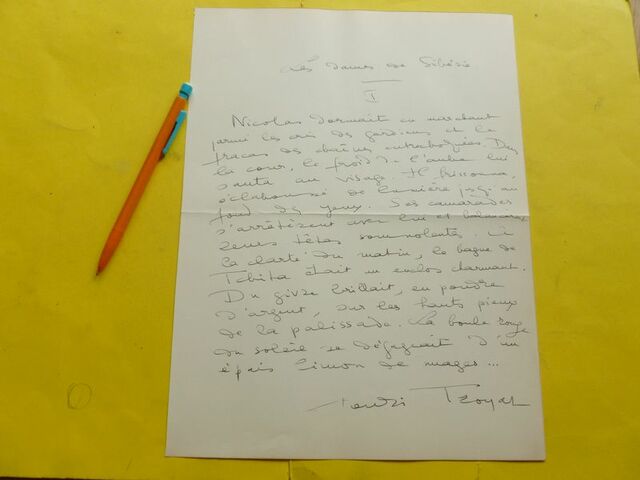 Les dames de Sibérie
I
Nicolas dormait en marchant
parmi les cris des gardiens et le
fracas des chaînes entrechoquées. Dans
la cour, le froid de l'aube lui
sauta au visage. Il frissonna,
éclaboussé de lumière jusqu'au
fond des yeux. Ses camarades
s'arrêtèrent avec lui et balancèrent
leurs têtes somnolentes. À
la clarté du matin, le bagne de
Tchita était un enclos charmant.
Du givre brillait, en poudre
d'argent, sur les hauts pieux
de la palissade. La boule rouge
du soleil se dégageait d'un
épais limon de nuages...
Henri Troyat